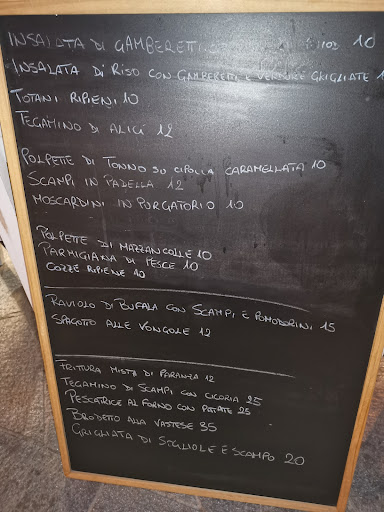 INSALATA DI GAMBERETTI 10
INSALATA DI RISO CON GAMBERETTI E VERDURE GRIGLIATE
TOTANI RIPIENI 10
TEGAMINO DI ALICI 12
POLPETTE DI TONNO SU CIPOLLA CARAMELLATA 10
SCAMPI IN PADELLA 12
MOSCARDINI IN PURGATORIO 10
POLPETTE DI MAZZANCOLLE 10
PARMIGIANA DI PESCE 10
COZZE RIPIENE 10
RAVIOLO DI BUFALA CON SCAMPI E POMODORINI 15
SPAGOTTO ALLE VONGOLE 12
FRITTURA MISTA DI PARANZA 12
TEGAMINO DI SCAMPI CON CICORIA 25
PESCATRICE AL FORNO CON PATATE 25
BRODETTO ALLA VASTESE 35
GRIGLIATA DI SOGLIOLE E SCAMPO 20